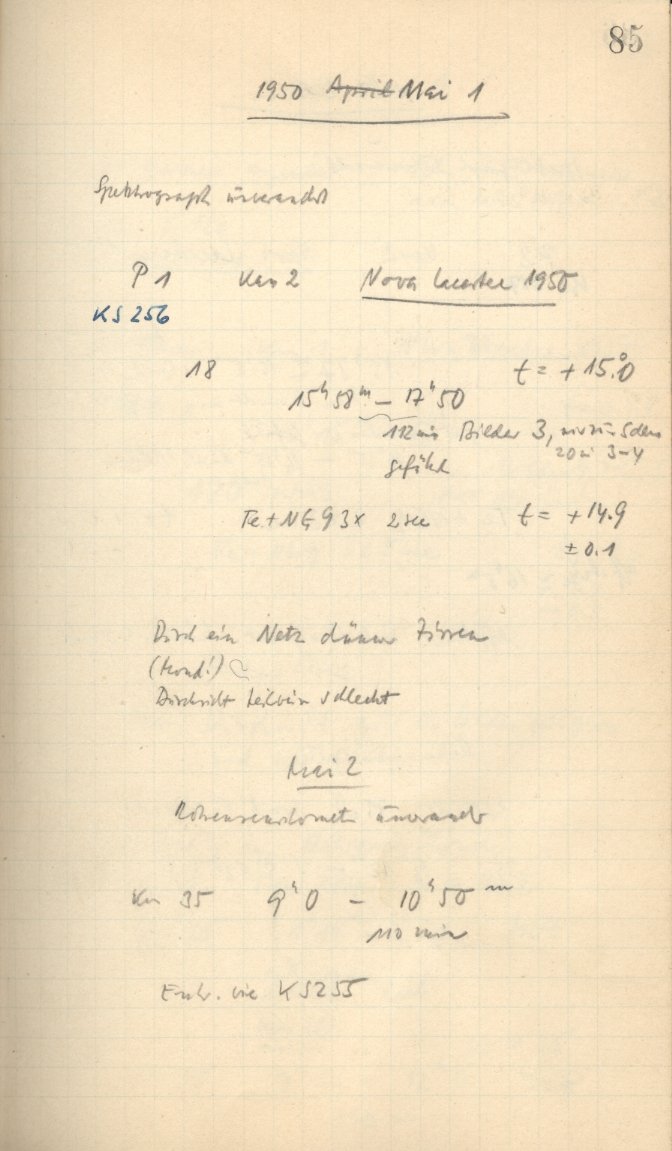 85
1950 April Mai 1
Spektrograph unverändert
P 1 Kas 2 Nova Lacertae 1950
KS 256
18 t = + 15.°0
15ʰ 58ᵐ – 17ʰ 50
112 min Bilder 3,
20 3–4
geführt
Fe + 3x 2 sec t = + 14.9
± 0.1
Durch ein Netz dünner Zirren
(Mond!)
Durchsicht teilweise schlecht
Mai 2
unverändert
35 9ʰ 0 – 10ʰ 50 ᵐ
110 min
Entw. wie KS 255